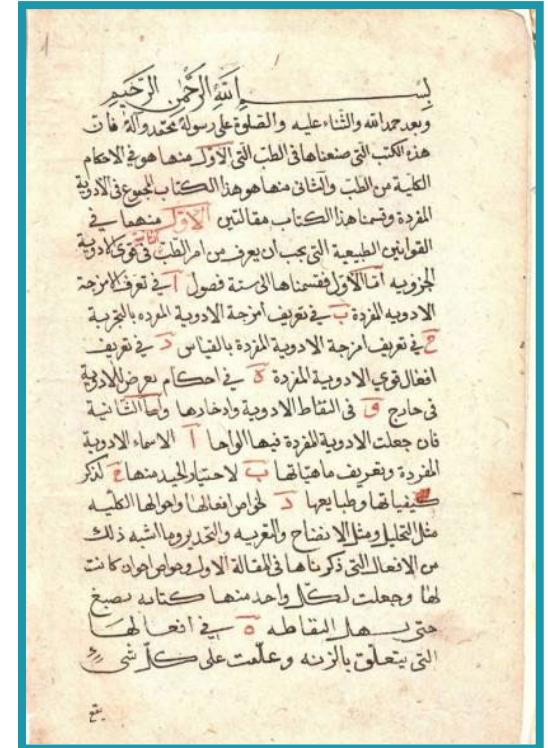 بسم الله الرحمن الرحيم
وبعد حمد الله والثناء عليه والصلوة على رسوله محمد وآله فان
هذه الكتب التى صنعناها فى الطب التى الاول منها هو فى الاحكام
الكلية من الطب والثانى منها هو هذا الكتاب المجموع فى الادوية
المفردة وقسمنا هذا الكتاب مقالتين الاول منهما في
القوانين الطبيعية التى يجب ان يعرف من امر الطب فى قوى الادوية
الجزويه أما الأول فقسمناها الى ستة فصول آ في تعرف الامزجة
الادويه المفردة ب في تعريف امزجة الادوية المفرده بالتجربة
ج في تعريف امزجة الادوية المفردة بالقياس د في تعريف
افعال قوي الادوية المفردة ه في احكام تعرض للادوية
فى خارج و فى التقاط الادوية وادخارها وأما الثانية
فان جعلت الادوية المفردة فيها الواحا آ الاسماء الادوية
المفردة وبتعريف ماهياتها ب لاختيار الجيد منها ج لذكر
كيفياتها وطبايعها د لخواص افعالها واحوالها الكليه
مثل التحليل ومثل الانضاج والتغريه والتخدير وما اشبه ذلك
من الافعال التى ذكرناها فى المقالة الاولى وخواص اخران كانت
لها وجعلت لكل واحد منها كتابه بصبغ
حتى يسهل التقاطه ه في افعالها
التى يتعلق بالزنه وعلمت على كل شى
يقع